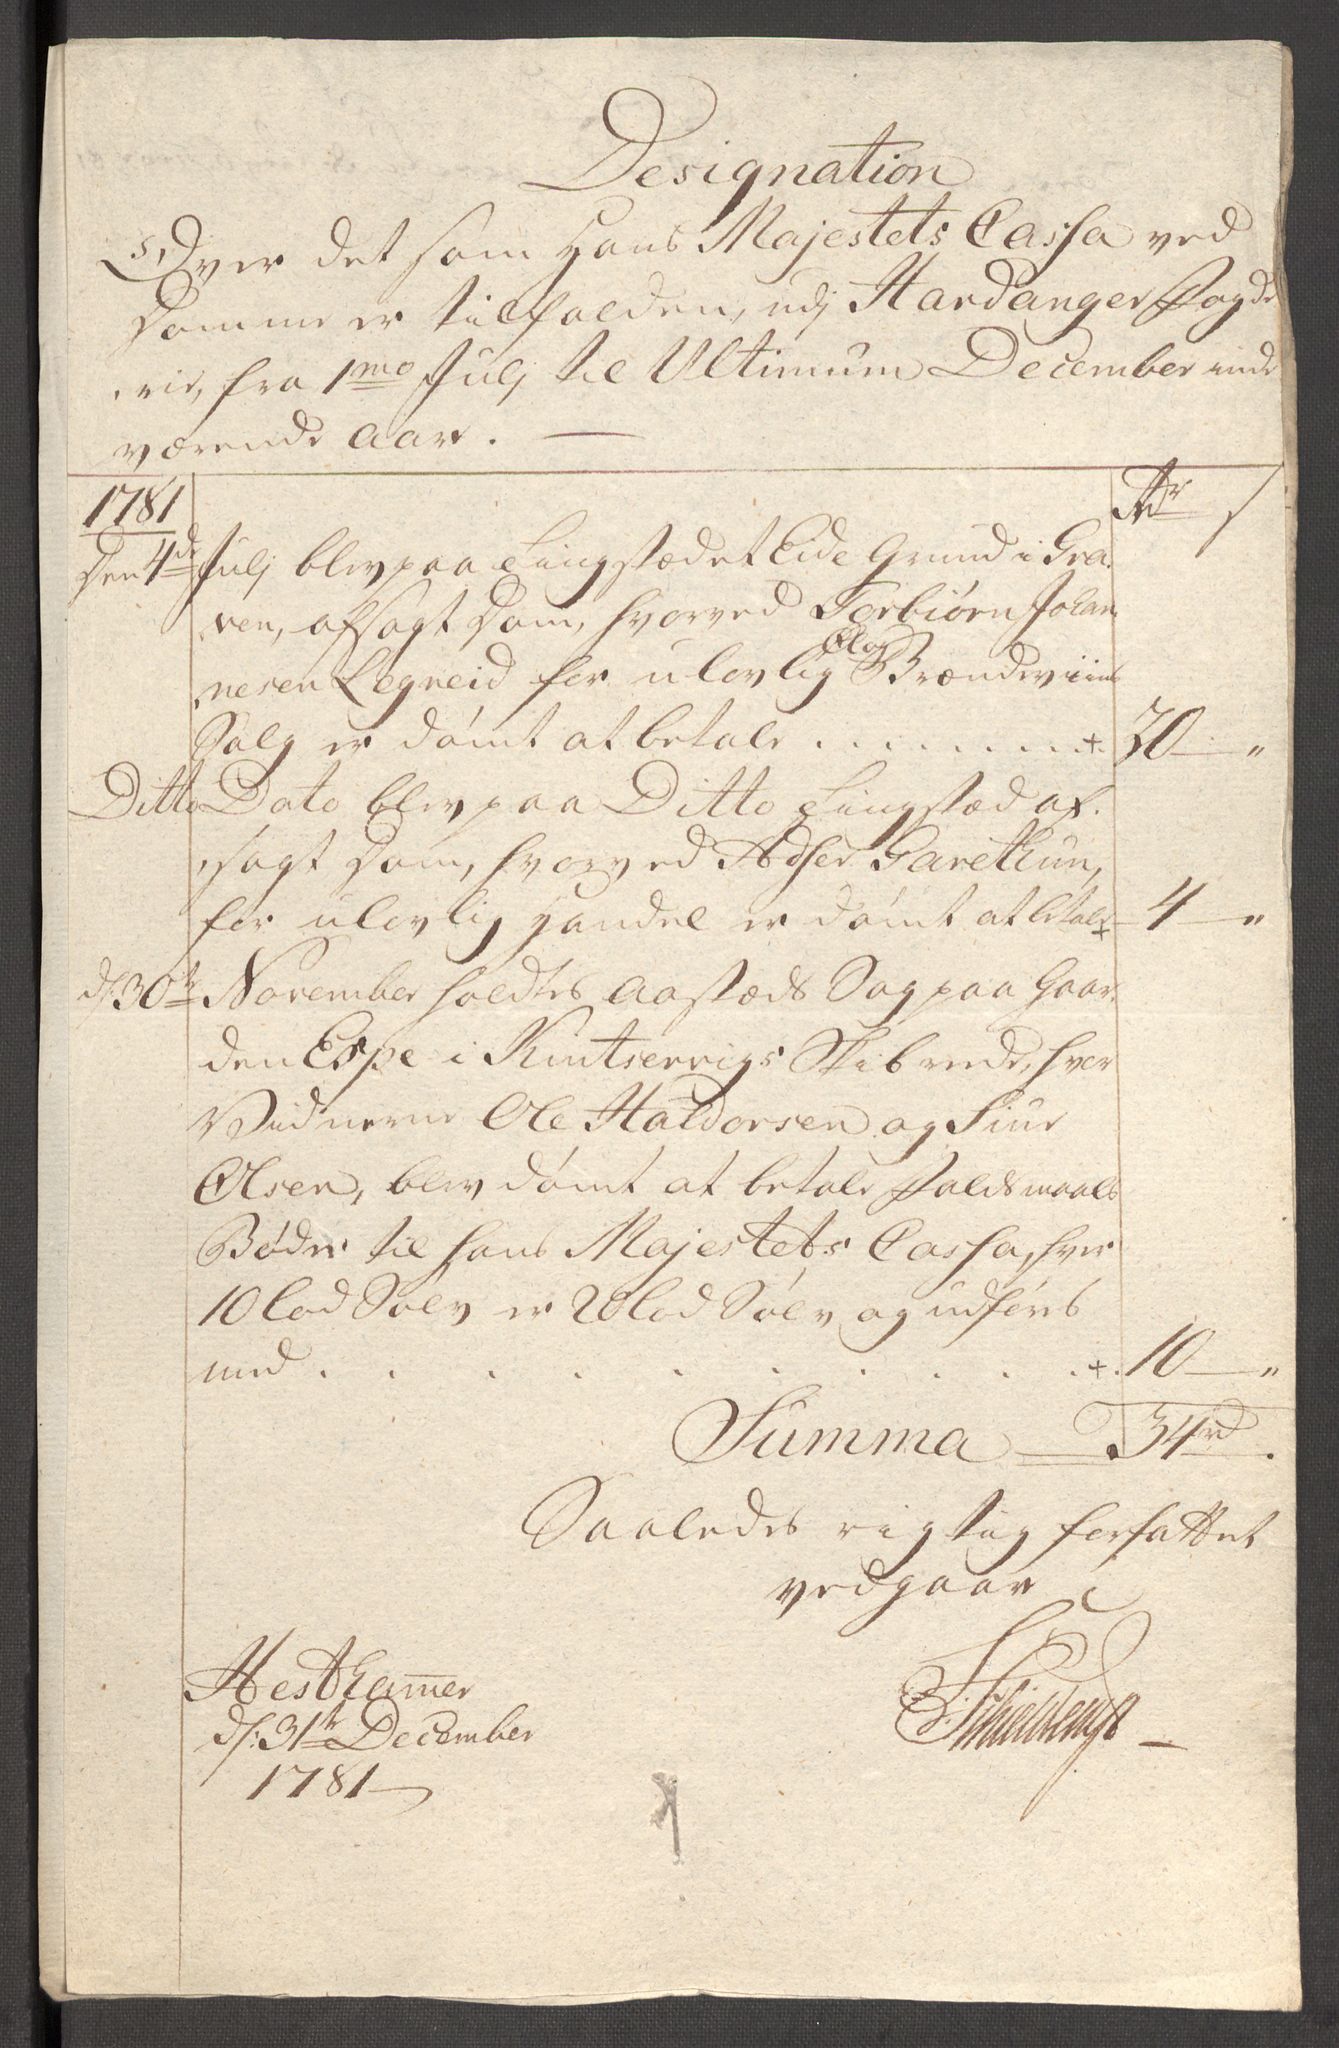 Designation
Over det som Hans Majestets Cassa ved
Domme er tilfalden, udj Hardanger Fogde
rie, fra 1mo Julj til Ultimum December inde
værende Aar. —
1781 Rdr s
Den 4de Julj blev paa Tingstædet Eide Grund i Gra-
ven, afsagt Dom, hvorved Torbiørn Johan
nesen Legreid for ulovlig Øl og Brændeviins
Salg er dømt at betale . . . . . . . . + 20 — "
Ditto Dato blev paa Ditto Tingstæd af-
sagt Dom, hvorved Adser Garethun,
for ulovlig Handel er dømt at betale + 4 — "
d: 30te November holdtes Aastæds Sag paa Gaar-
den Espe i Kintservigs Skibrede, hvor
Vidnerne Ole Haldorsen og Siur
Olsen, blev dømt at betale Faldsmaals
Bøder til Hans Majestets Cassa, hver
10 lod Sølv er 20 lod Sølv og udføres
med . . . . . . . . . . +. 10 — "
Summa — 34rd.
Saaledes rigtig forfattet
vedgaar
Hesthamer
d: 31te December
1781